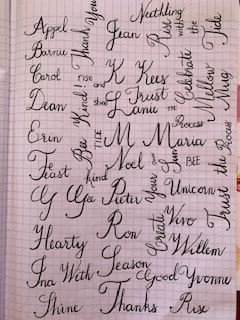 Appel
Barnie
Carol
Dean
Erin
Te
Feast
G Gea
Hearty
Ina With
Shine
Thank You
rise
and
shine
Bee Kind!
TIDE
Bee
kind
Jean
K Kees
L Trust
Lanie
M Maria
Noel
Pieter
Ron
Season
Thanks Rise
Neithling
Rise with the Tide
Celebrate
the
Process
Mellow
Mug
Your own Sun
BEE
Create
Unicorn
Vivo
Willem
Good Yvonne
Trust the Process